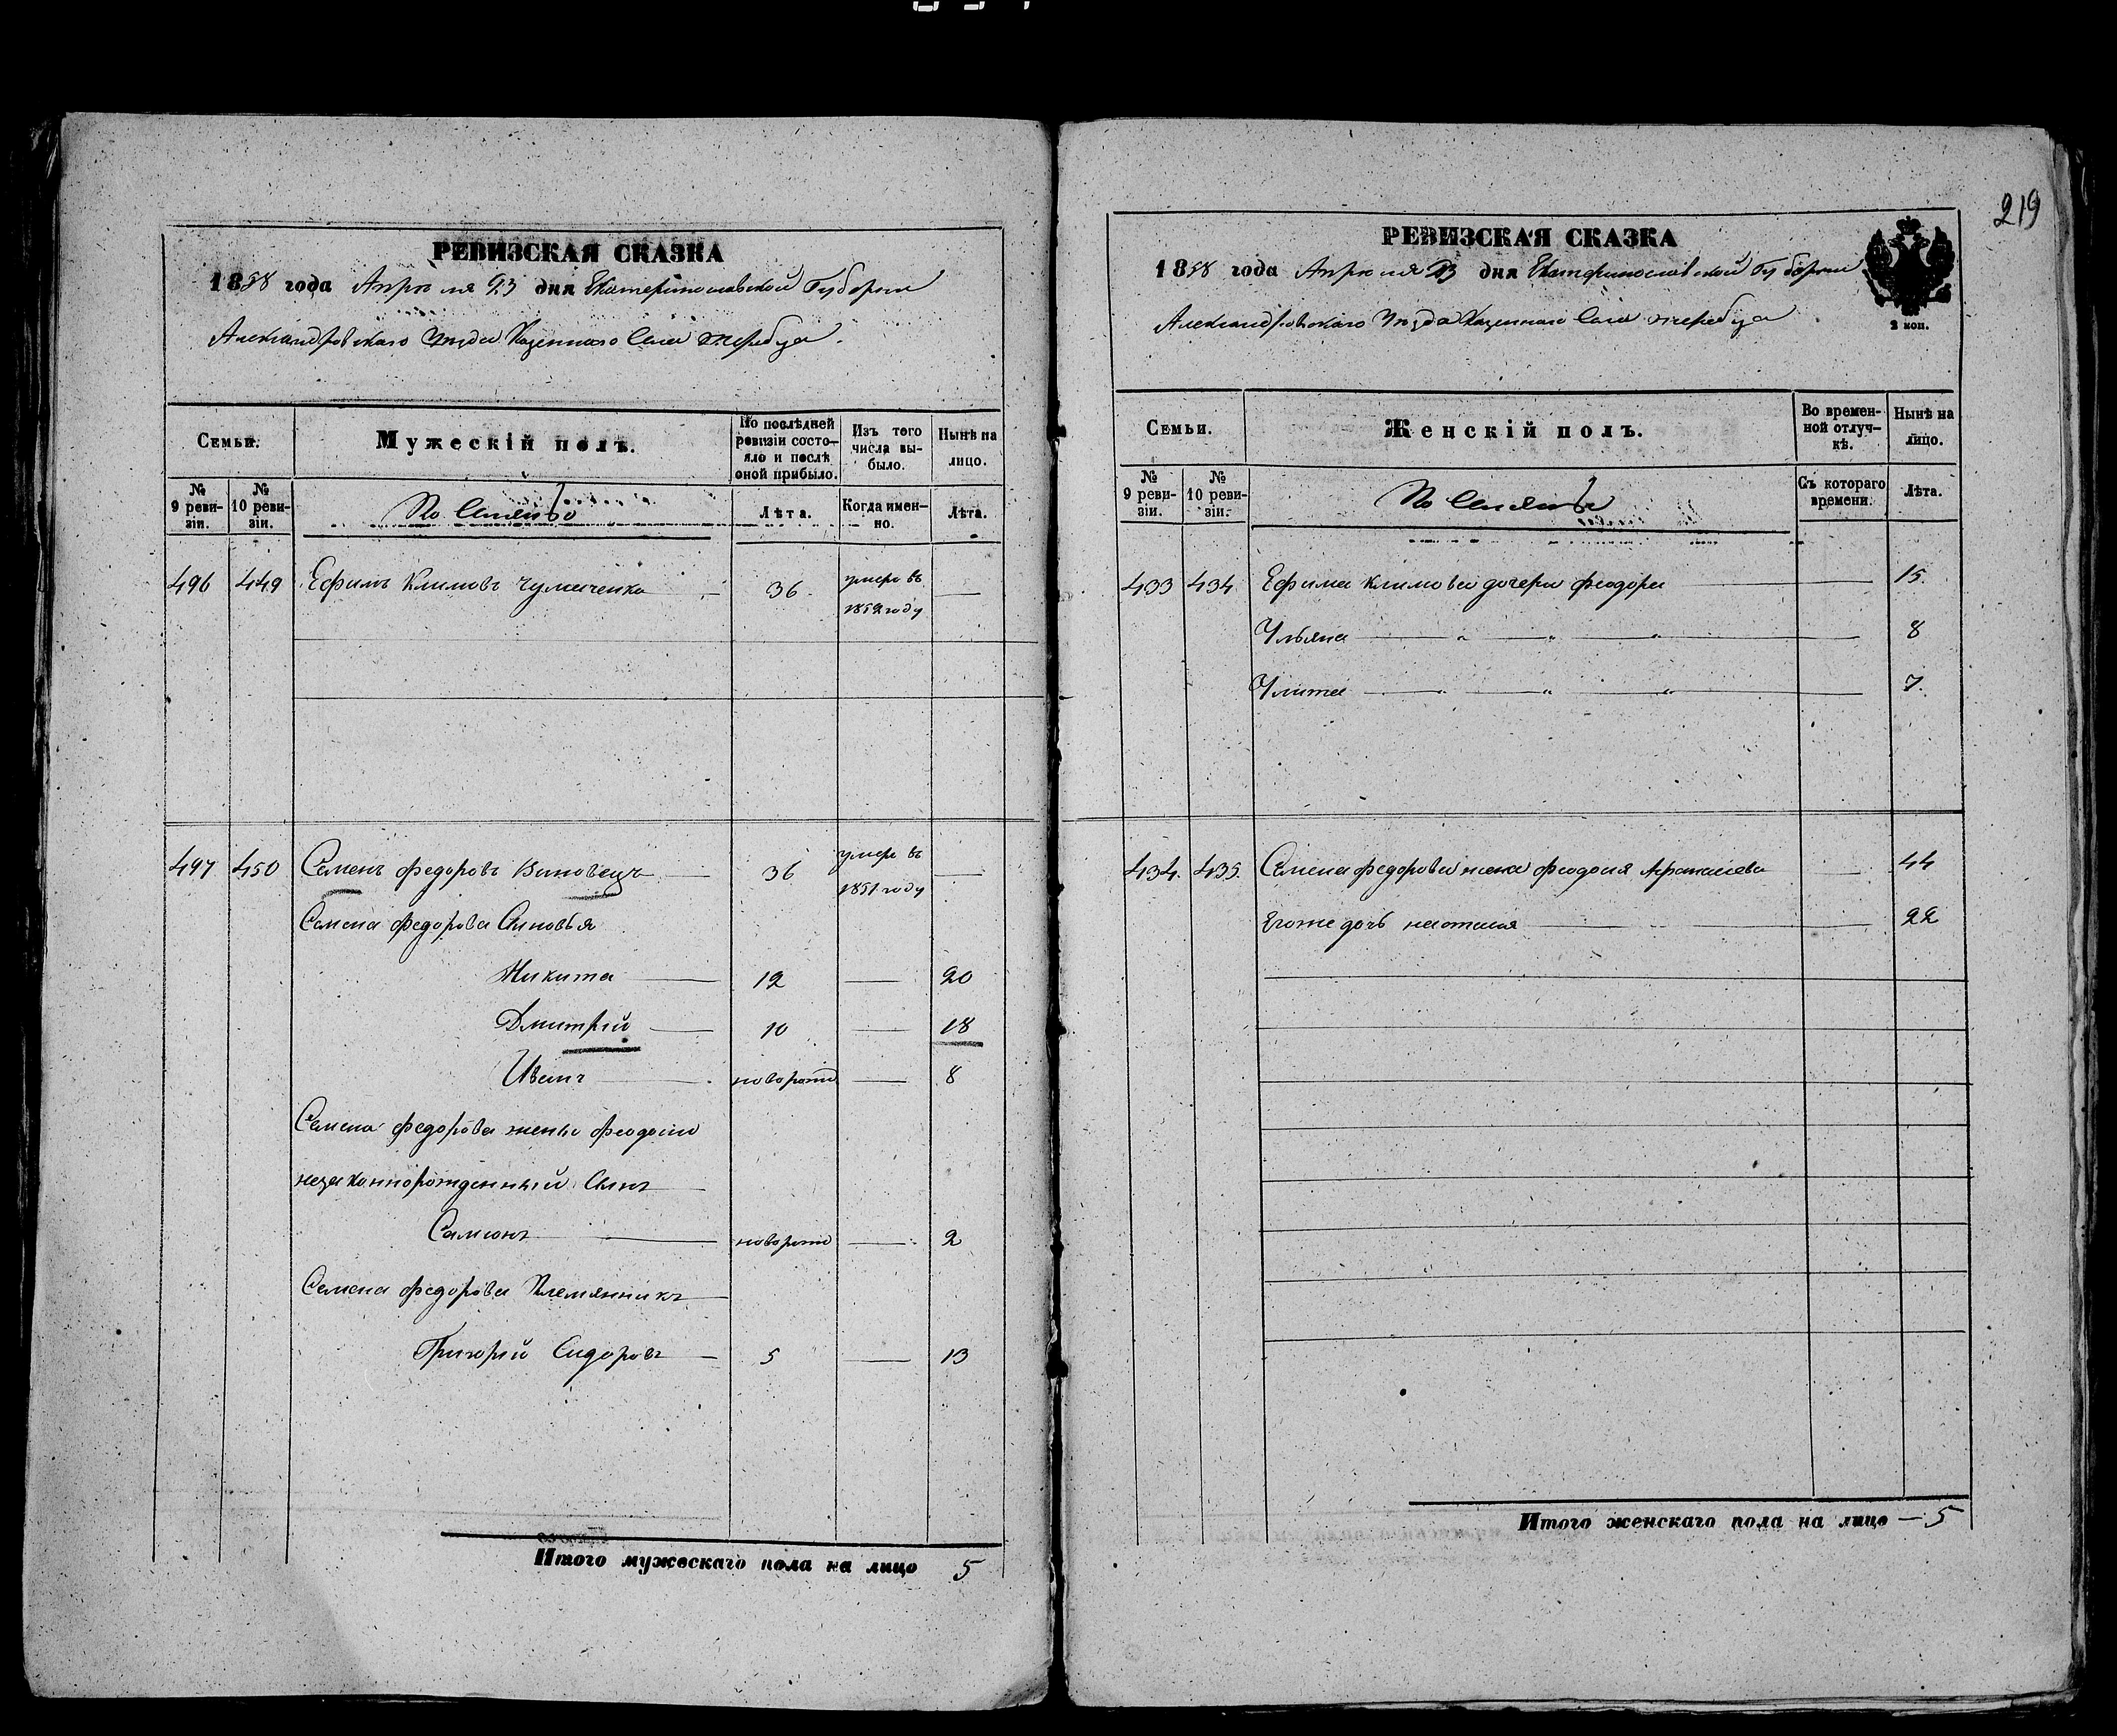 219
РЕВИЗСКАЯ СКАЗКА
1858 года Апреля 23 дня Екатеринославской Губернии
Александровскаго Уезда Казеннаго Села Жеребца.
Семьи.
Мужескій полъ.
По послѣдней ревизіи состояло и послѣ оной прибыло.
Изъ того числа выбыло.
Нынѣ на лицо.
№ 9 ревизіи.
№ 10 ревизіи.
Лѣта.
Когда именно.
Лѣта.
496 449 Ефимъ Климовъ Чумаченко 36 умеръ въ 1852 году
497 450 Семенъ Федоровъ Виновецъ 36 умеръ въ 1851 году
Семена Федорова Сыновья
Никита 12 20
Дмитрій 10 18
Иванъ новорожд 8
Семена Федорова жены Феодосіи
незаконнорожденный Сынъ
Самсонъ новорожд 2
Семена Федорова Племянникъ
Григорій Сидоровъ 5 13
Итого мужескаго пола на лицо 5
РЕВИЗСКАЯ СКАЗКА
1858 года Апреля 23 дня Екатеринославской Губернии
Александровскаго Уезда Казеннаго Села Жеребца
2 коп.
Семьи.
Женскій полъ.
Во временной отлучкѣ.
Нынѣ на лицо.
№ 9 ревизіи.
№ 10 ревизіи.
Съ котораго времени.
Лѣта.
433 434 Ефима Климова дочери Феодора 15.
Ульяна " " " 8
Улита " " " 7.
434. 435. Семена Федорова жена Феодосія Афанасіева 44
Егоже дочь Наталія 22
Итого женскаго пола на лицо — 5